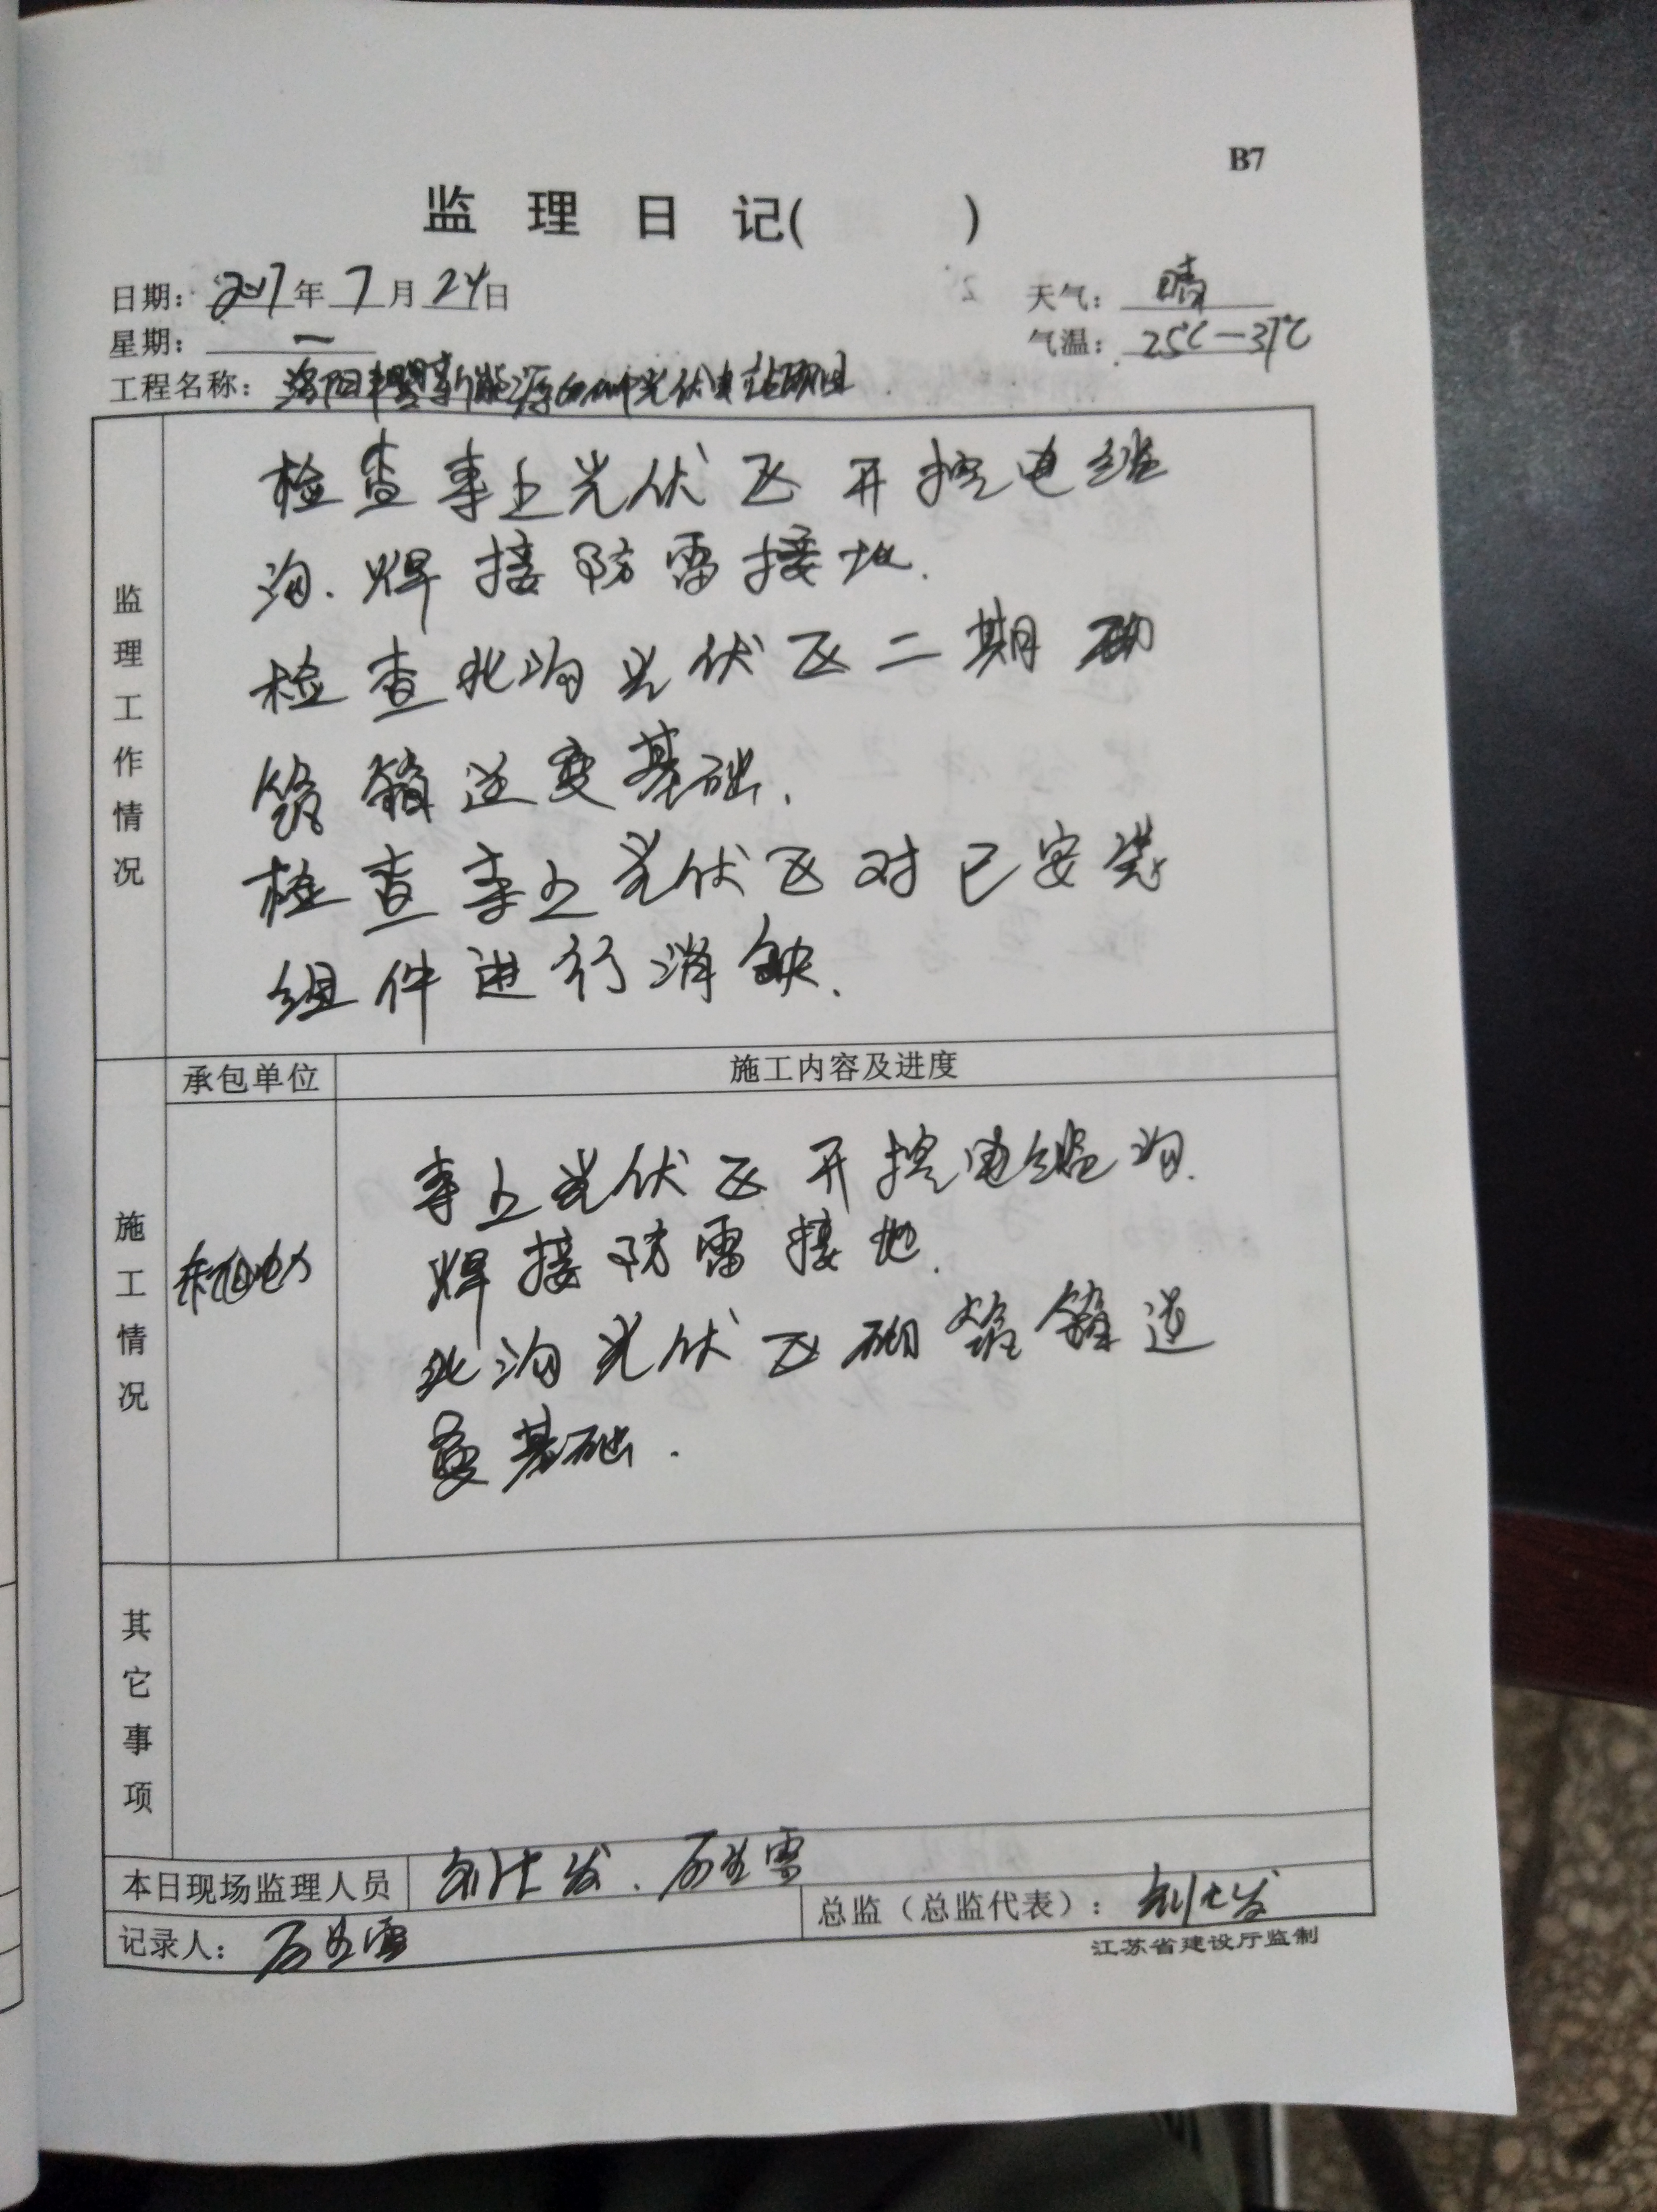 B7
监 理 日 记( )
日期: 2017年 7 月 24日
天气: 晴
星期: 一
气温: 25℃-37℃
工程名称: 洛阳丰盟新能源 光伏电站项目
监理工作情况
检查李上光伏区开挖电缆
沟.焊接防雷接地.
检查北沟光伏区二期砌
筑箱逆变基础.
检查李上光伏区对已安装
组件进行消缺.
承包单位
施工内容及进度
施工情况
东旭电力
李上光伏区开挖电缆沟.
焊接防雷接地.
北沟光伏区砌筑箱逆
变基础.
其它事项
本日现场监理人员
发.
记录人:
总监(总监代表):
江苏省建设厅监制